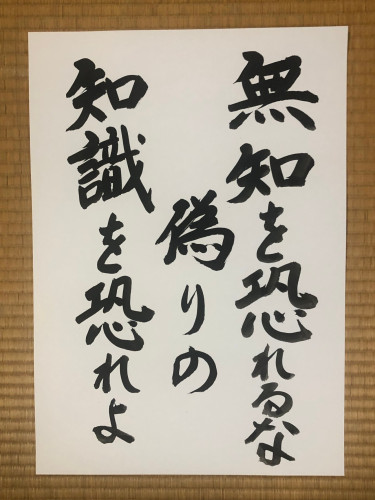 無知を恐れるな
偽りの
知識を恐れよ